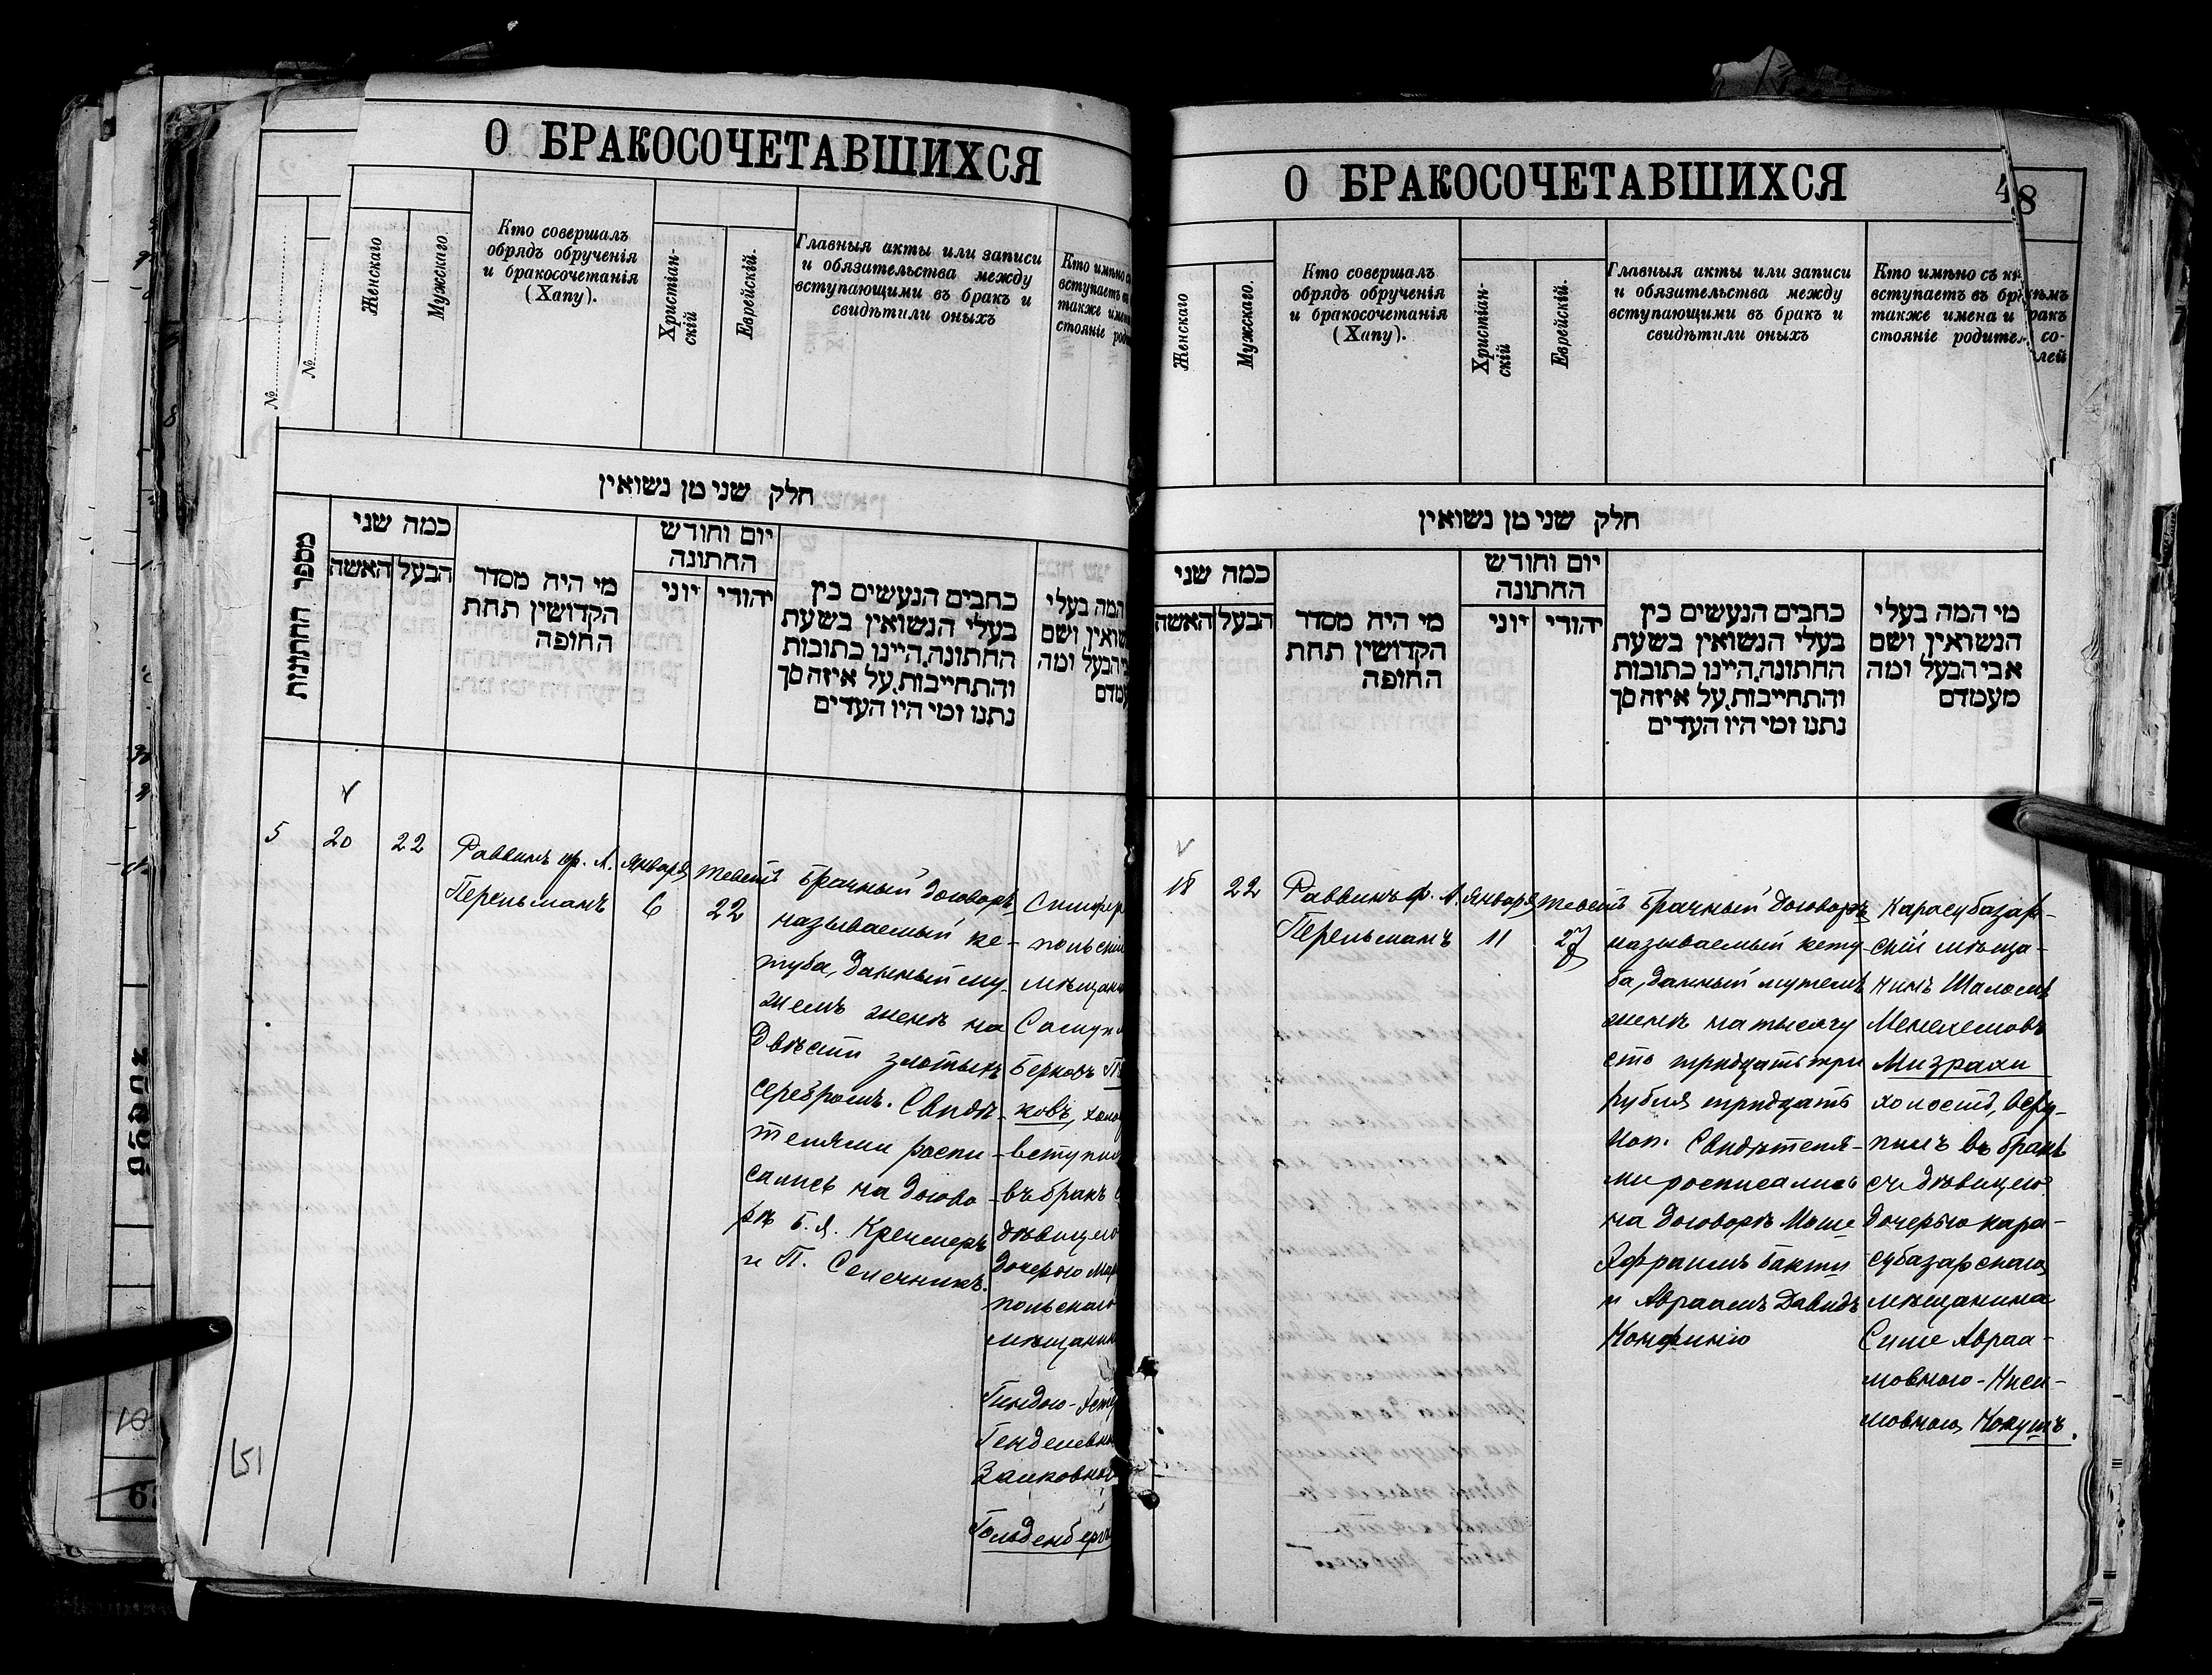 О БРАКОСОЧЕТАВШИХСЯ
№
№
Женскаго
Мужскаго.
Кто совершалъ
обрядъ обрученія
и бракосочетанія
(Хапу).
Христіан-
скій
Еврейскій.
Главныя акты или записи
и обязательства между
вступающими въ бракъ и
свидѣтили оныхъ
Кто имѣно
вступаетъ
также
стояніе
חלק שני מן נשואין
מספר החתונות
כמה שני
האשה
הבעל
מי היה מסדר
הקדושין תחת
החופה
יום וחודש
החתונה
יוני
יהודי
כתבים הנעשים בין
בעלי הנשואין בשעת
החתונה, היינו כתובות
והתחייבות, על איזה סך
נתנו ומי היו העדים
המה בעלי
ושם
הבעל ומה
5
20
22
Раввинъ ф. А.
Перельманъ
Января
6
Теветъ
22
Брачный договоръ
называемый ке-
туба, данный му-
жемъ женѣ на
Двѣсти злотыхъ
серебромъ. Свидѣ-
телями роспи-
сались на догово-
рѣ Б. Я. Кремеръ
и П. Селечникъ.
Симфер
польскій
мѣщани
Берковъ
ковъ, холо
вступил
въ бракъ
дѣвицею
дочерью
польскаго
мѣщанин
Генделевн
Гольденберг
151
О БРАКОСОЧЕТАВШИХСЯ
48
Женскаго
Мужскаго.
Кто совершалъ
обрядъ обрученія
и бракосочетанія
(Хапу).
Христіан-
скій
Еврейскій.
Главныя акты или записи
и обязательства между
вступающими въ бракъ и
свидѣтили оныхъ
Кто имѣно съ кѣмъ
вступаетъ въ бракъ
также имена и со-
стояніе родителей
חלק שני מן נשואין
כמה שני
האשה
הבעל
מי היה מסדר
הקדושין תחת
החופה
יום וחודש
החתונה
יוני
יהודי
כתבים הנעשים בין
בעלי הנשואין בשעת
החתונה, היינו כתובות
והתחייבות, על איזה סך
נתנו ומי היו העדים
מי המה בעלי
הנשואין ושם
אבי הבעל ומה
מעמדם
18
22
Раввинъ ф. А.
Перельманъ
Января
11
Теветъ
27
Брачный договоръ
называемый кету-
ба, данный мужемъ
женѣ на тысячу
сто тридцать три
рубля тридцать
коп. Свидѣтеля-
ми росписались
на договорѣ Моше
Эфраимъ Бакши
и Авраамъ Давидъ
Конфино
Карасубазар-
скій мѣща-
нинъ Шаломъ
Менехемовъ
Мизрахи
холостъ, всту-
пилъ въ бракъ
съ дѣвицею
дочерью кара-
субазарскаго
мѣщанина
Симе Авраа-
мовною-Ниси-
мовною Кокушъ.